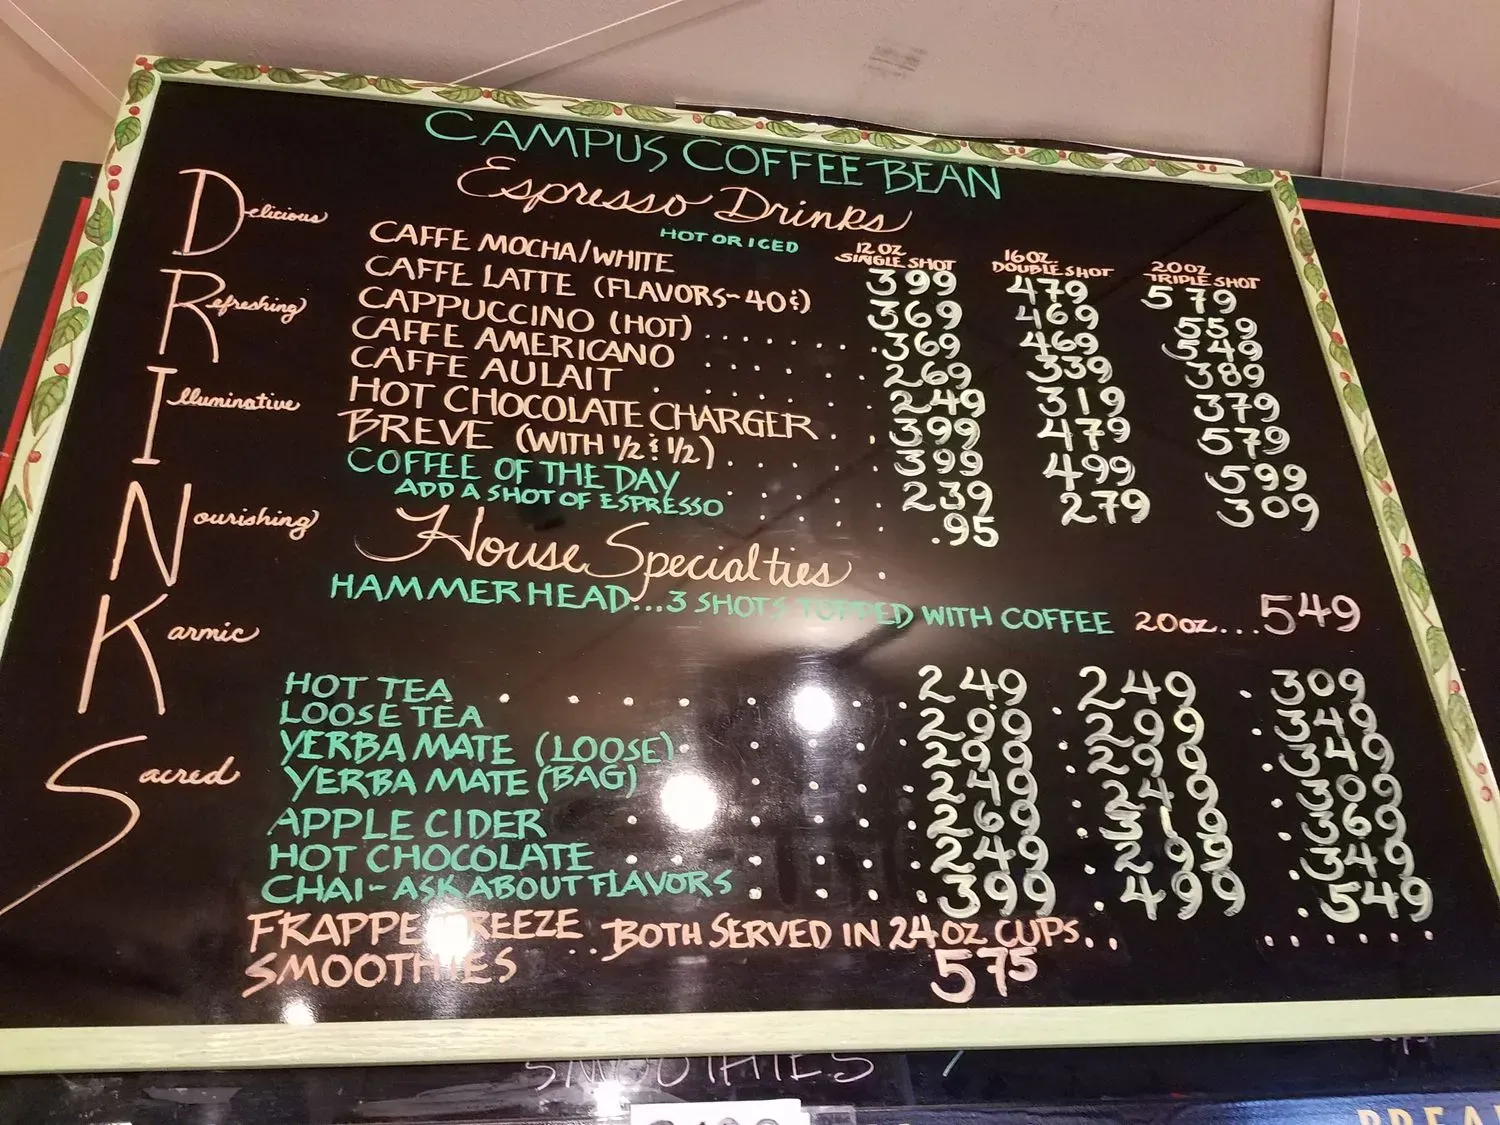 CAMPUS COFFEE BEAN
Espresso Drinks
HOT OR ICED
12 OZ. SINGLE SHOT 16 OZ. DOUBLE SHOT 20 OZ TRIPLE SHOT
Delicious
Refreshing
Illuminative
Nourishing
Karmic
Sacred
CAFFE MOCHA/WHITE 399 479 579
CAFFE LATTE (FLAVORS~40¢) 369 469 559
CAPPUCCINO (HOT) ........ 369 469 549
CAFFE AMERICANO ...... 269 339 389
CAFFE AULAIT ...... 249 319 379
HOT CHOCOLATE CHARGER . . 399 479 579
BREVE (WITH 1/2 & 1/2) ..... 399 499 599
COFFEE OF THE DAY ..... 239 279 309
ADD A SHOT OF ESPRESSO .... .95
House Specialties .
HAMMERHEAD...3 SHOTS TOPPED WITH COFFEE 20oz...549
HOT TEA ........ 249 249 . 309
LOOSE TEA ..... 299 . 299 . 349
YERBA MATE (LOOSE) ..... 299 . 299 . 349
YERBA MATE (BAG) ..... 249 . 249 . 309
APPLE CIDER ...... 269 . 319 . 369
HOT CHOCOLATE ...... 249 . 299 . 349
CHAI~ASK ABOUT FLAVORS .... 399 . 499 . 549
FRAPPE FREEZE .. BOTH SERVED IN 24 OZ CUPS.. ......
SMOOTHIES 575
SMOOTHIES